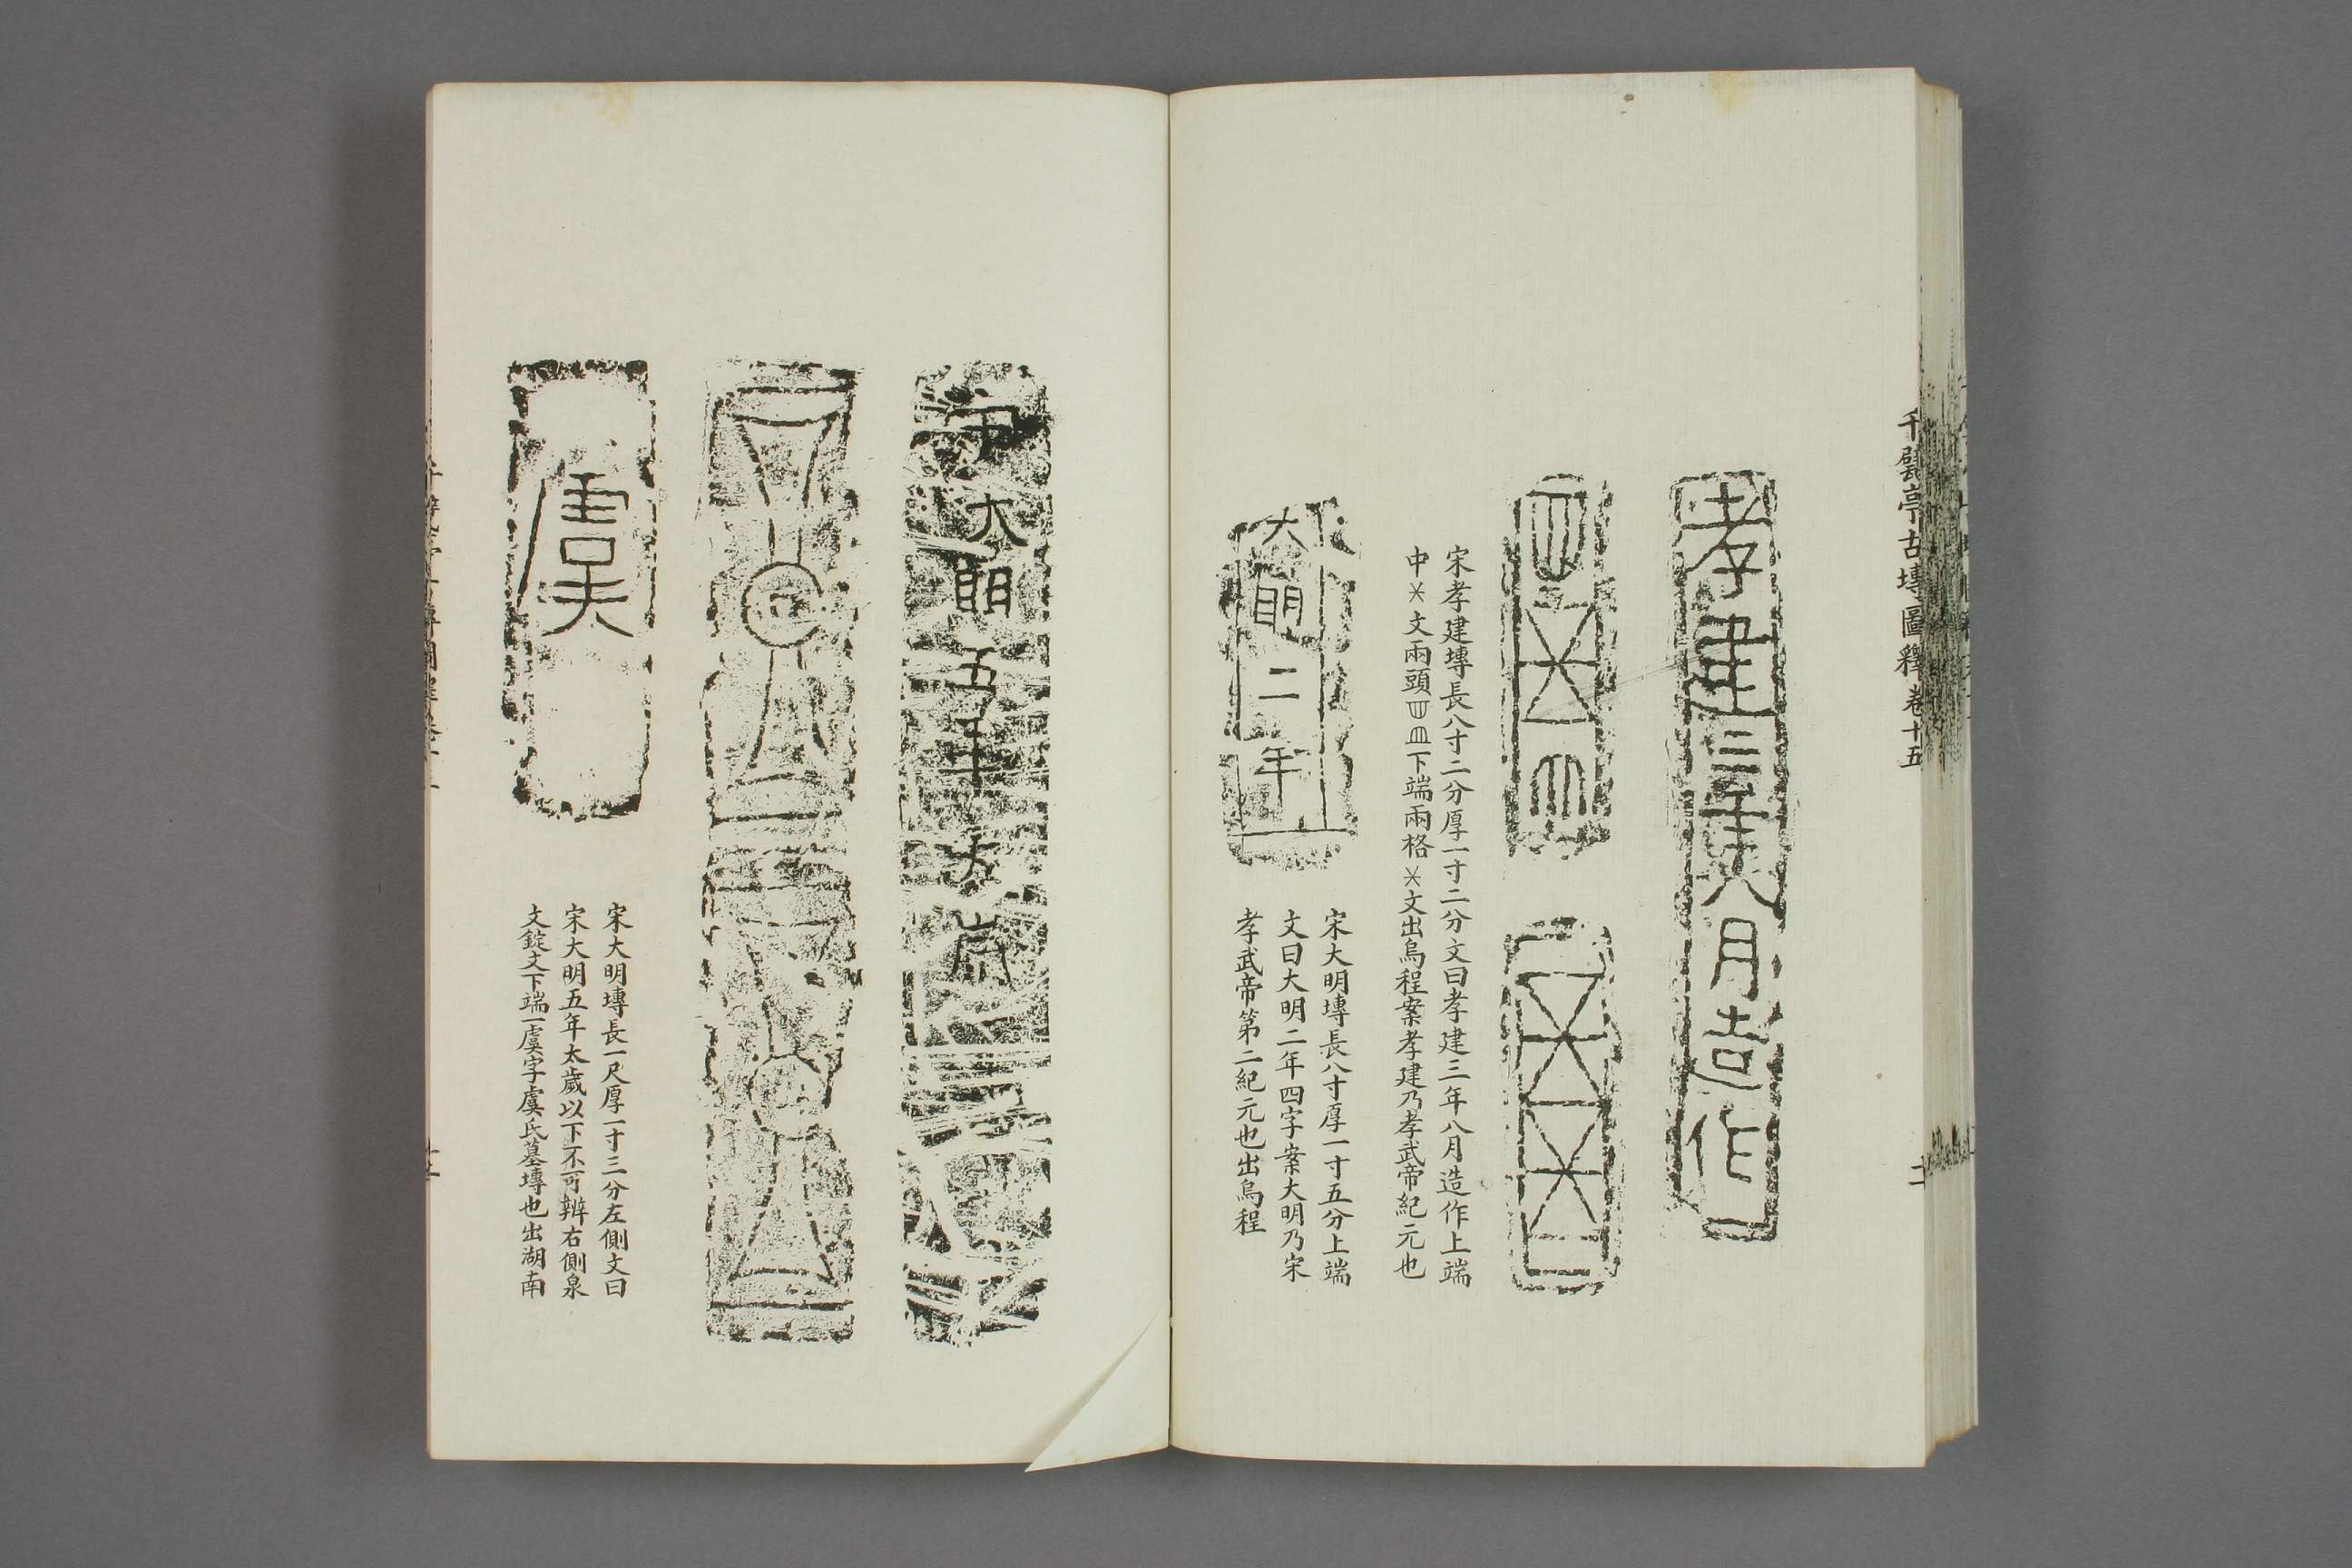 千甓亭古塼圖釋卷十五
孝建三年八月造作
宋孝建塼長八寸二分厚一寸二分文曰孝建三年八月造作上端
中文兩頭下端兩格文出烏程案孝建乃孝武帝紀元也
大明二年
宋大明塼長八寸厚一寸五分上端
文曰大明二年四字案大明乃宋
孝武帝第二紀元也出烏程
宋大明五年太歲
虞
宋大明塼長一尺厚一寸三分左側文曰
宋大明五年太歲以下不可辨右側泉
文錠文下端一虞字虞氏墓塼也出湖南